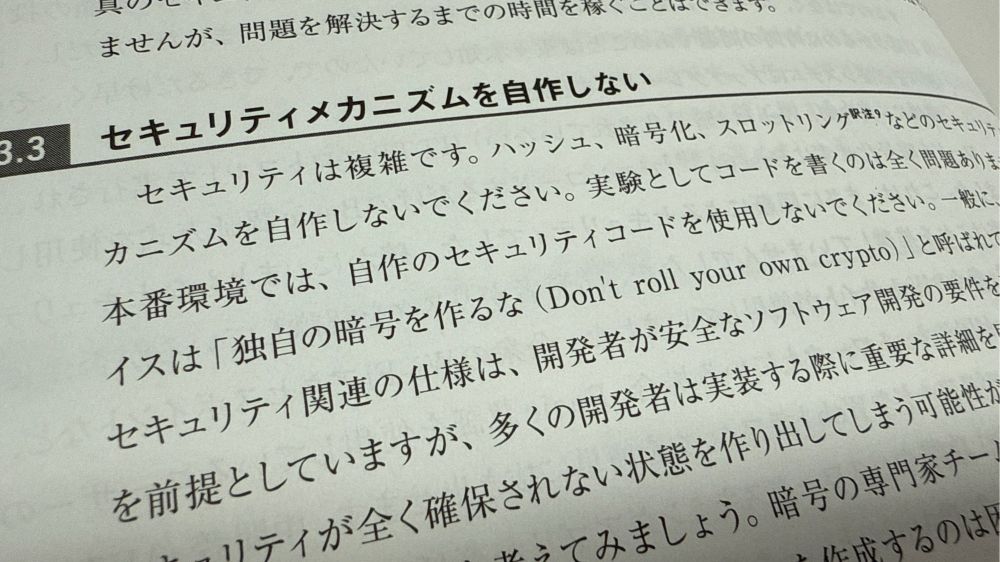 真のセキ
ませんが、問題を解決するまでの時間を稼ぐことはできます。
3.3 セキュリティメカニズムを自作しない
セキュリティは複雑です。ハッシュ、暗号化、スロットリング訳注9などのセキュリテ
カニズムを自作しないでください。実験としてコードを書くのは全く問題ありませ
本番環境では、自作のセキュリティコードを使用しないでください。一般に、
イスは「独自の暗号を作るな(Don't roll your own crypto)」と呼ばれて
セキュリティ関連の仕様は、開発者が安全なソフトウェア開発の要件を
を前提としていますが、多くの開発者は実装する際に重要な詳細を
キュリティが全く確保されない状態を作り出してしまう可能性が
考えてみましょう。暗号の専門家チーム
を作成するのは